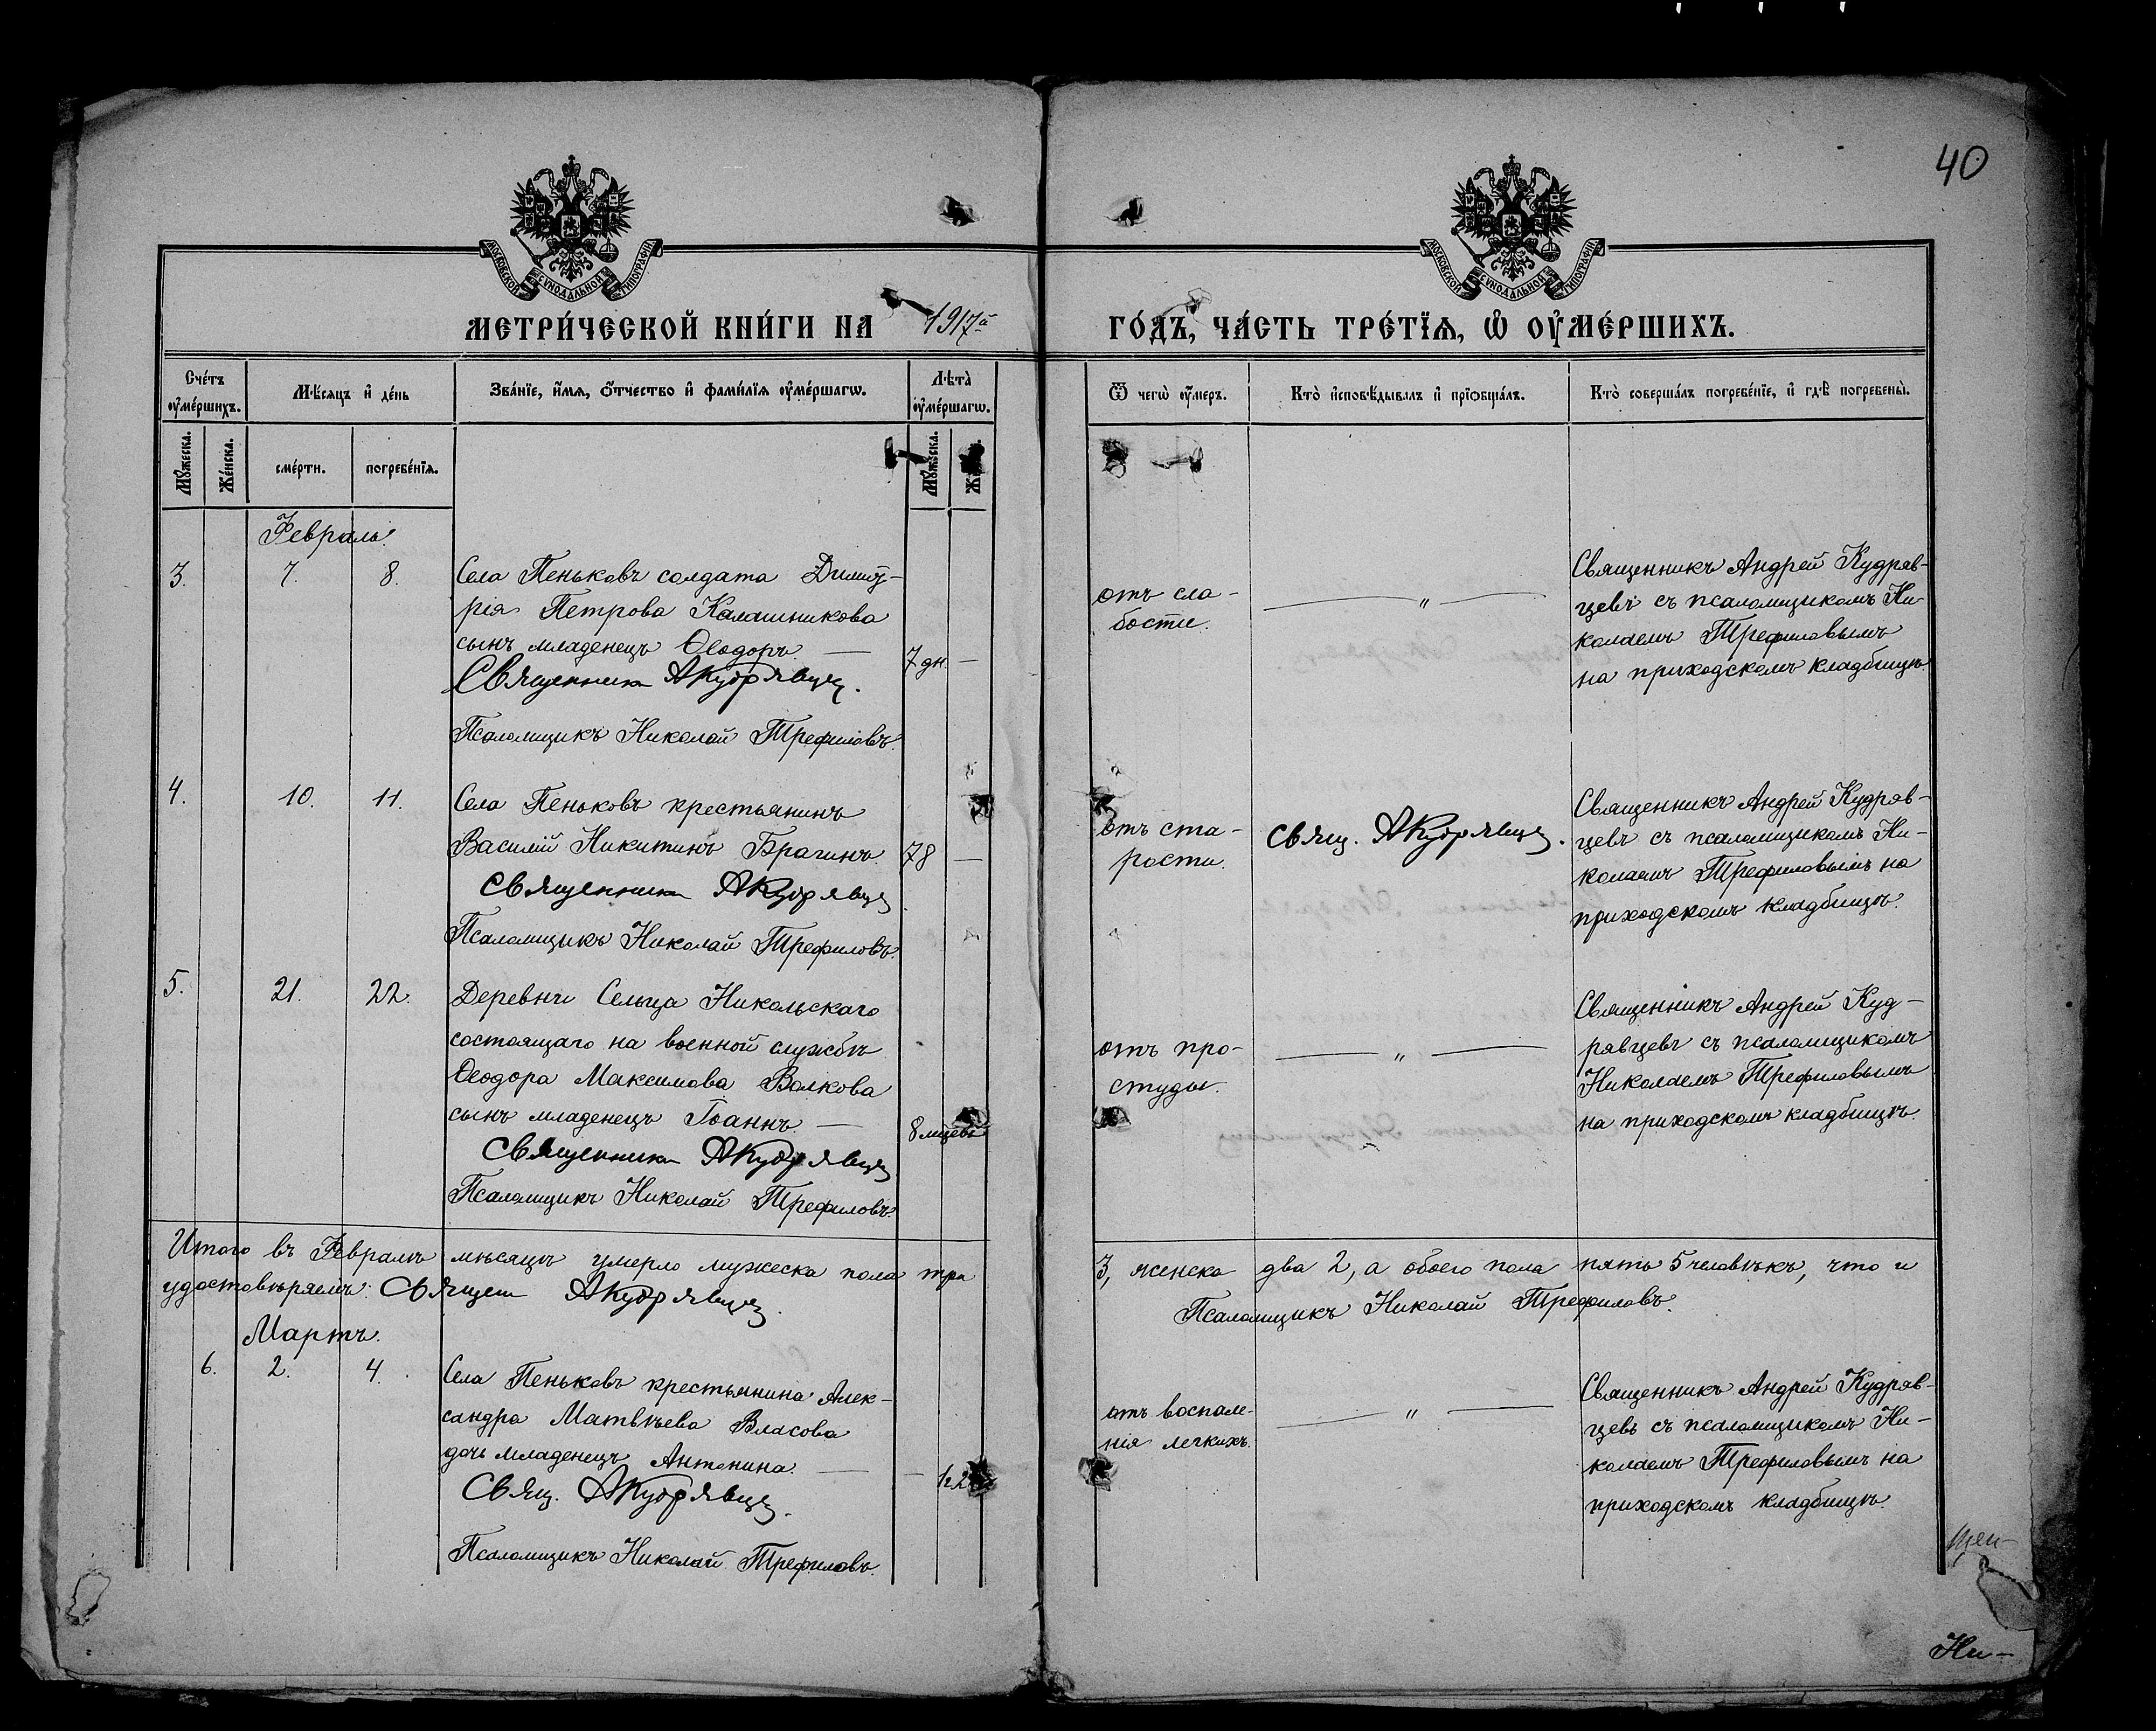 40
МОСКОВСКОЙ СѴНОДАЛЬНОЙ ТИПОГРАФІИ
МОСКОВСКОЙ СѴНОДАЛЬНОЙ ТИПОГРАФІИ
МЕТРИ́ЧЕСКОЙ КНИ́ГИ НА 1917й ГО́ДЪ, ЧА́СТЬ ТРЕ́ТІѦ, Ѡ҆ ОУ҆МЕ́РШИХЪ.
Сче́тъ оу҆ме́ршихъ.
Мѣ́сяцъ и҆ де́нь
Зва́нїе, и҆́мя, ѻ҆́тчество и҆ фами́лїя оу҆ме́ршагѡ.
Лѣ́та оу҆ме́ршагѡ.
Ѿ чегѡ̀ оу҆́меръ.
Кто̀ и҆сповѣ́дывалъ и҆ прїѻбща́лъ.
Кто̀ соверша́лъ погребе́нїе, и҆ гдѣ̀ погребены̀.
Мꙋ́жеска.
Же́нска.
сме́рти.
погребе́нїя.
Мꙋ́жеска.
Февраль.
3. 7. 8.
Села Пеньковъ солдата Димит-
рія Петрова Калашникова
сынъ младенецъ Ѳеодоръ —
7 дн. —
Священник АКудрявцев.
Псаломщикъ Николай Трефиловъ.
отъ сла-
бости.
— " —
Священникъ Андрей Кудряв-
цевъ съ псаломщикомъ Ни-
колаемъ Трефиловымъ
на приходскомъ кладбищѣ.
4. 10. 11.
Села Пеньковъ крестьянинъ
Василій Никитинъ Брагинъ. 78 —
Священник АКудрявцев.
Псаломщикъ Николай Трефиловъ.
отъ ста-
рости.
Свящ. АКудрявцев.
Священникъ Андрей Кудряв-
цевъ съ псаломщикомъ Ни-
колаемъ Трефиловымъ на
приходскомъ кладбищѣ.
5. 21. 22.
Деревни Сельца Никольскаго
состоящаго на военной службѣ
Ѳеодора Максимова Волкова
сынъ младенецъ Іоаннъ. —
8 мцевъ
Священник АКудрявцев
Псаломщикъ Николай Трефиловъ.
отъ про-
студы.
— " —
Священникъ Андрей Куд-
рявцевъ съ псаломщикомъ
Николаемъ Трефиловымъ
на приходскомъ кладбищѣ.
Итого въ Февралѣ мѣсяцѣ умерло мужеска пола три 3, женска два 2, а обоего пола пять 5 человѣкъ, что и
удостовѣряемъ: Священ АКудрявцев. Псаломщикъ Николай Трефиловъ.
Мартъ.
6. 2. 4.
Села Пеньковъ крестьянина Алек-
сандра Матвѣева Власова
дочь младенецъ Антонина. —
—
Свящ. АКудрявцев.
Псаломщикъ Николай Трефиловъ.
отъ воспале-
нія легкихъ.
— " —
Священникъ Андрей Кудряв-
цевъ съ псаломщикомъ Ни-
колаемъ Трефиловымъ на
приходскомъ кладбищѣ.
Ни-